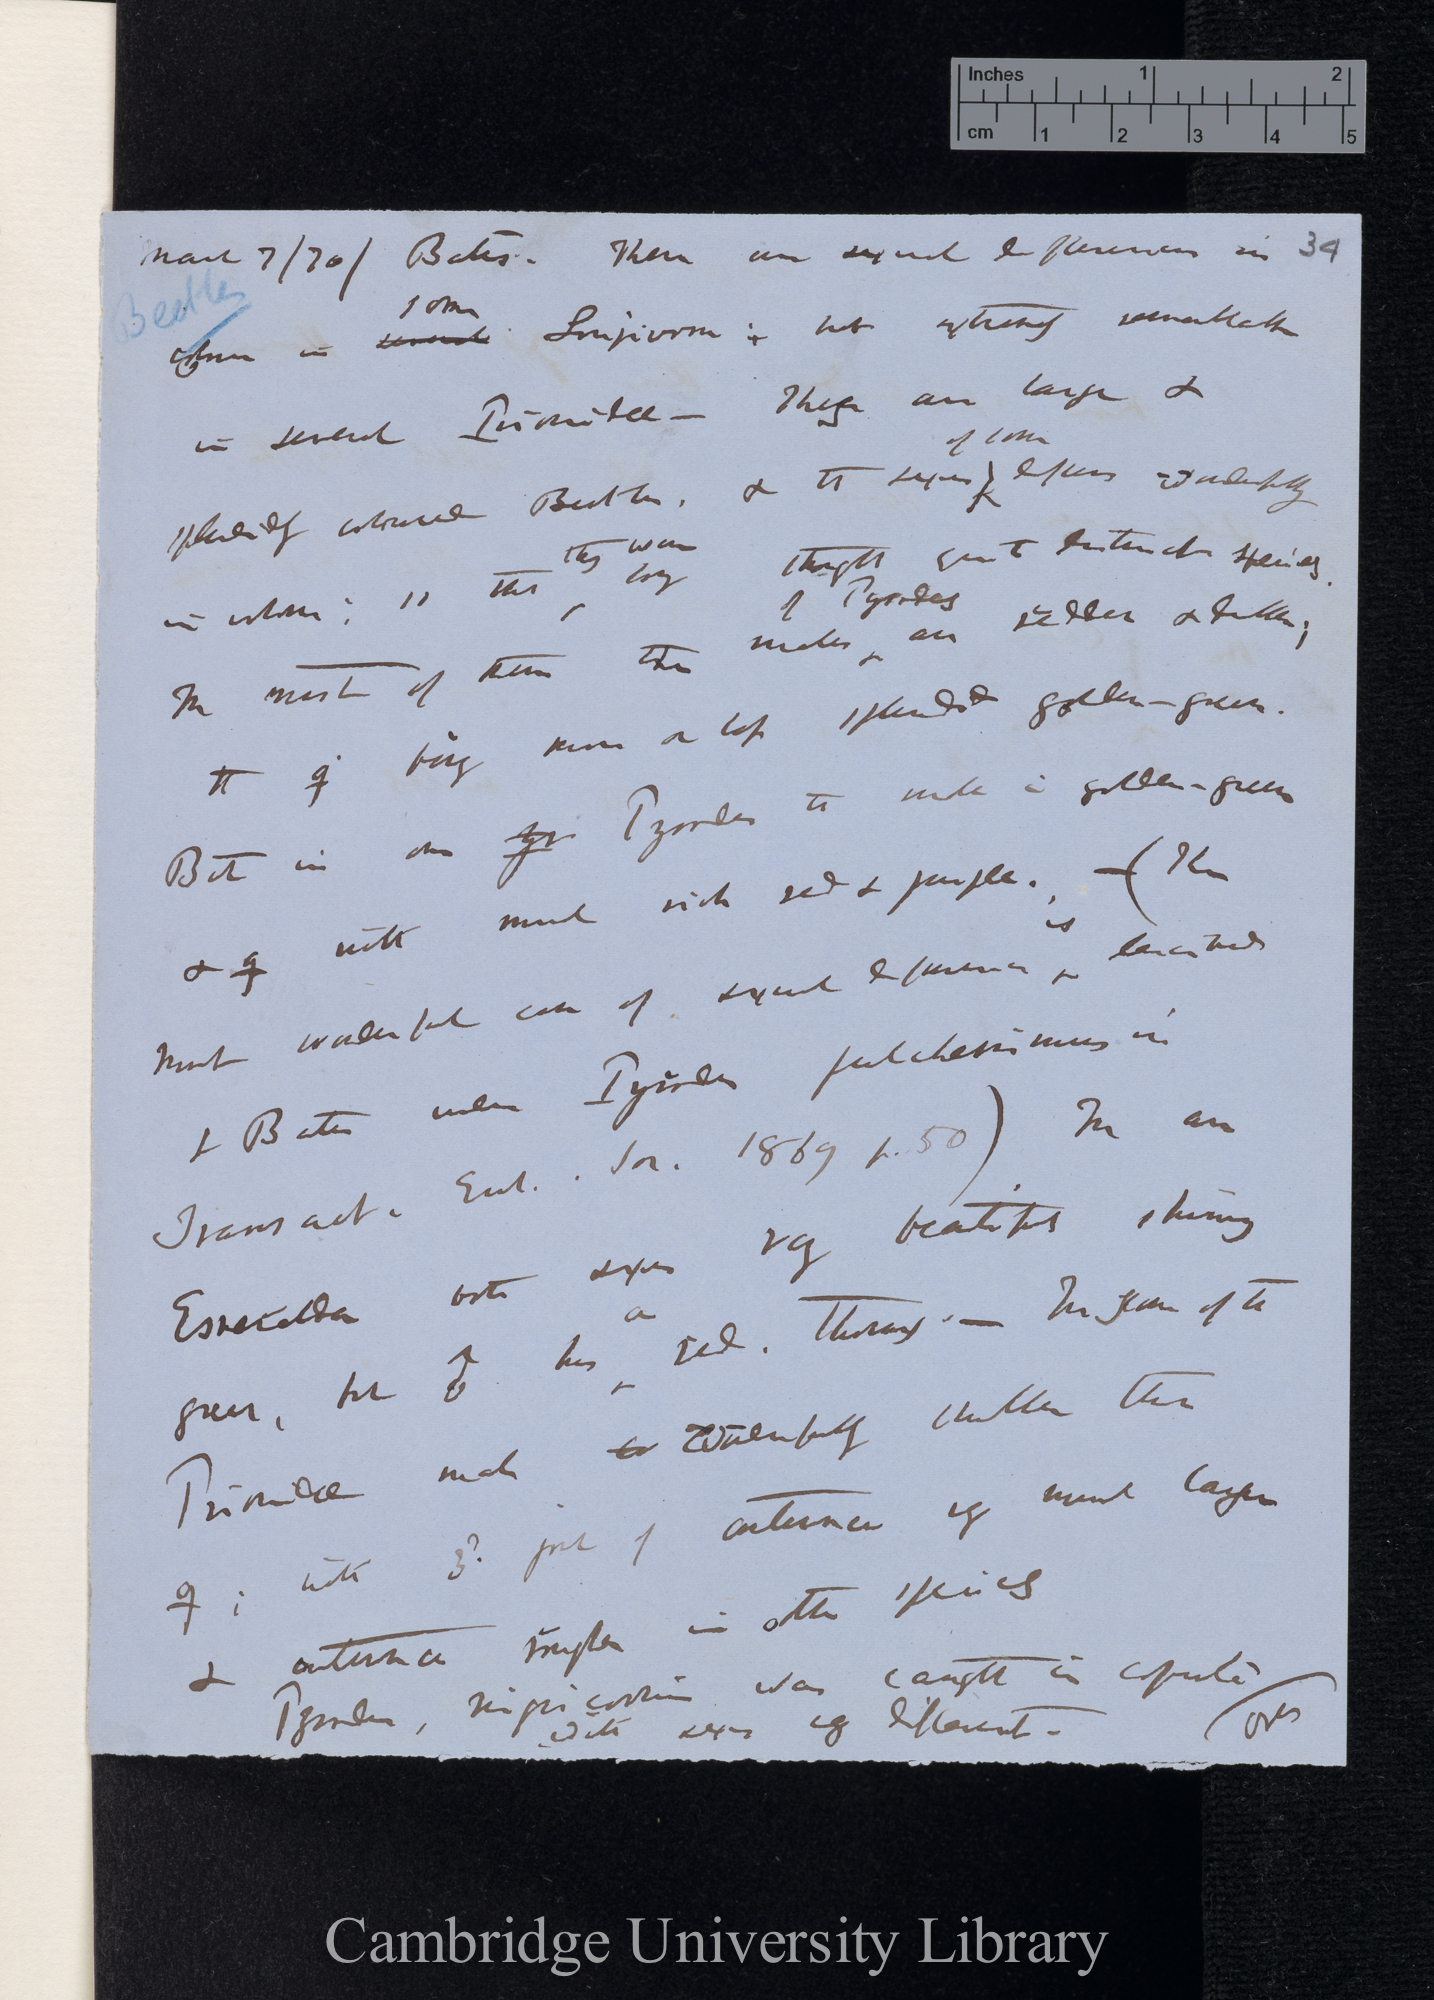 Inches 1 2
cm 1 2 3 4 5
34
March 7/70/ Bates. There are sexual differences in
Beetles
colour in several some Longicorns; but extremely remarkable
in several Prionidae — These are large &
splendidly coloured Beetles, & the sexes of some differ wonderfully
in colour; so that they were long thought quite distinct species.
In most of them the males of Pyrodes are redder & duller;
the ♀ being more or less splendid golden-green.
But in one Pyrodes the male is golden-green
& ♀ with much rich red & purple. — (The
most wonderful case of sexual difference is described
by Bates under Pyrodes pulcherrimus in
Transact. Ent. Soc. 1869 p. 50) In an
Esmeralda both sexes very beautiful shining
green, but ♂ has a red Thorax. — In some of the
Prionidae male wonderfully smaller than
♀; with 3? joint of antennae very much larger
& antennae simpler in other species
Pyrodes, nigricornis was caught in copula
with sexes very different. (over
Cambridge University Library